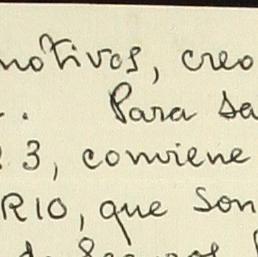 motivos, creo
. Para sa
3, conviene
RIO, que son